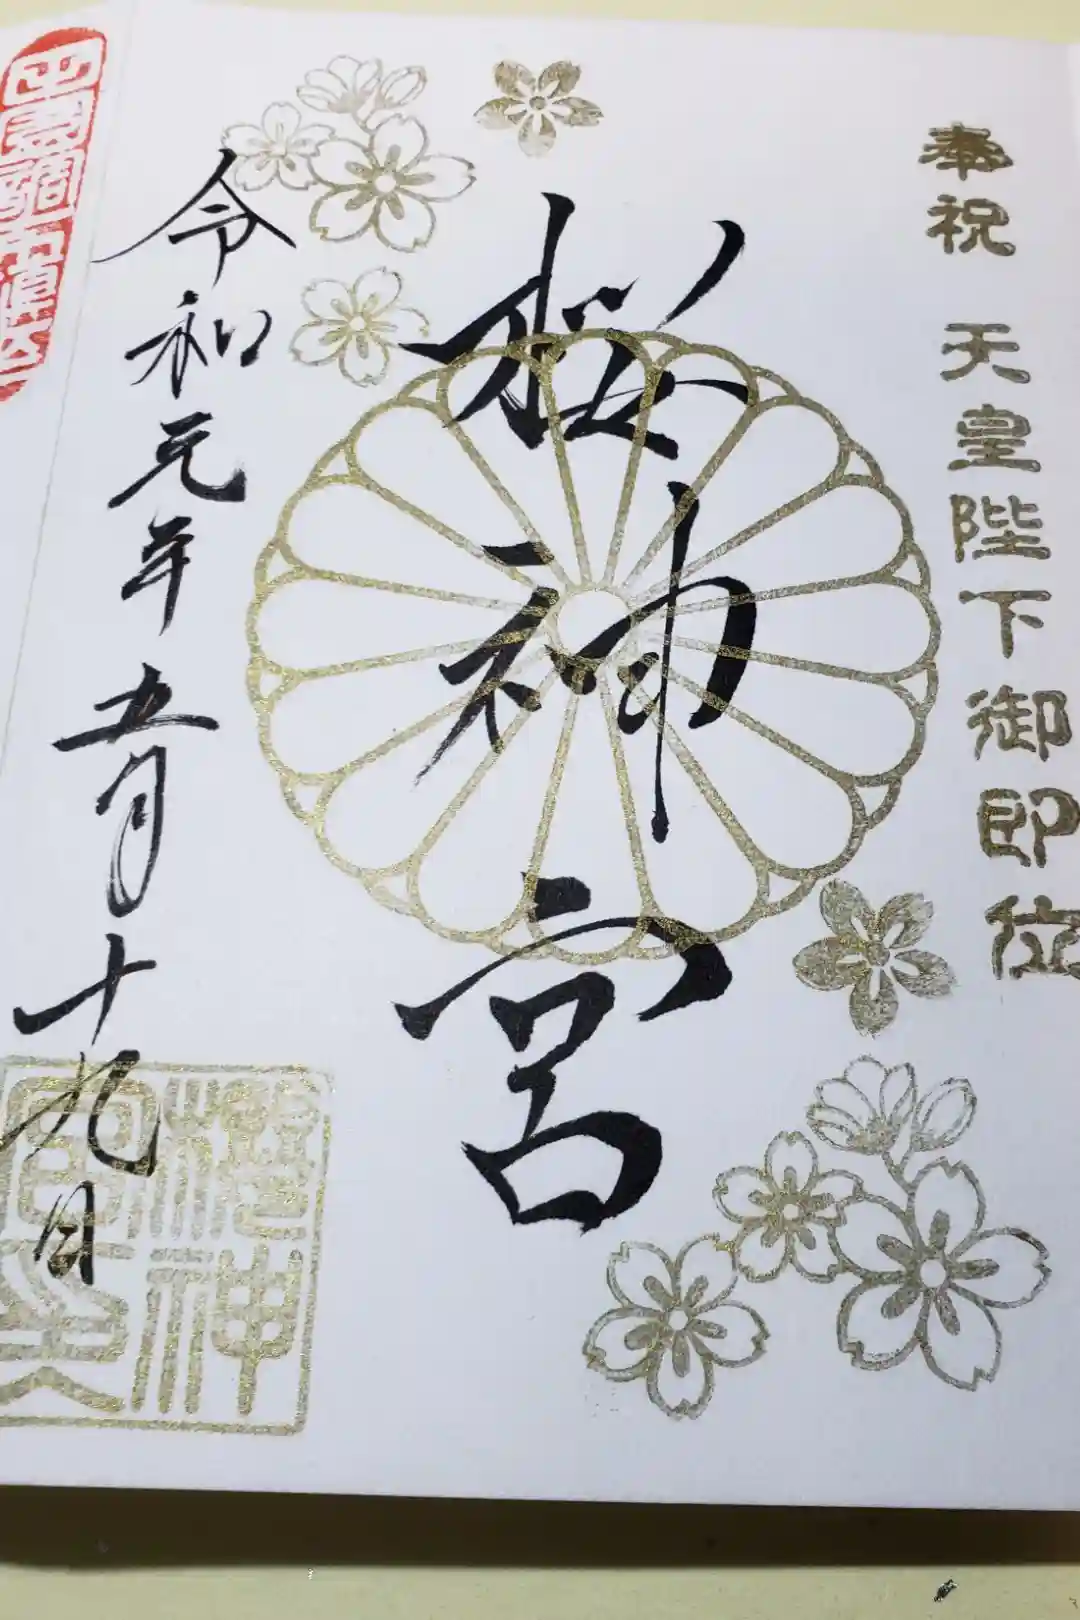 奉祝 天皇陛下御即位
桜神宮
令和元年五月十九日
櫻神宮